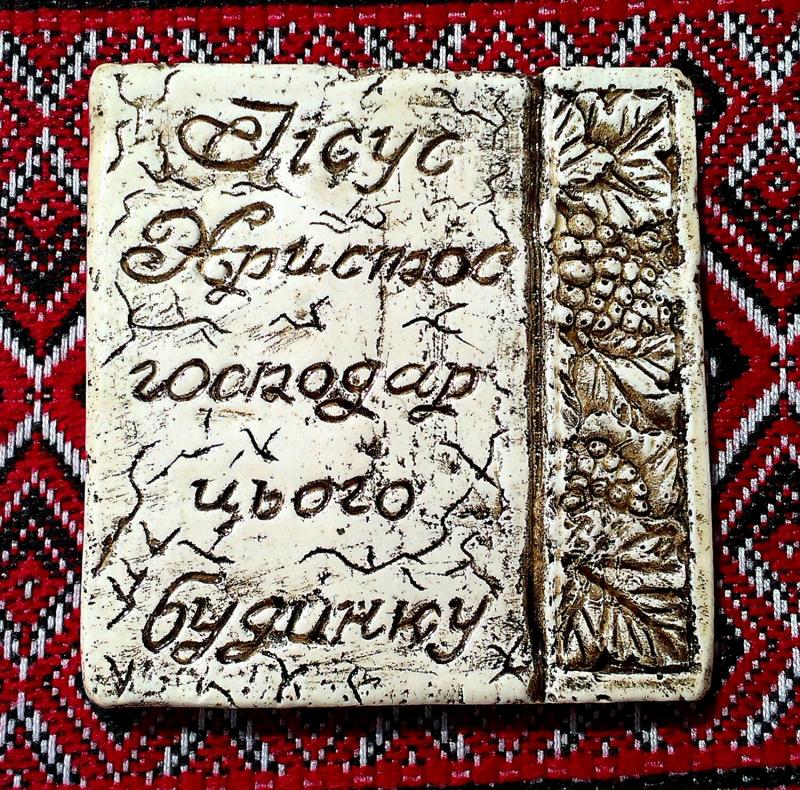 Ісус
Христос
господар
цього
будинку